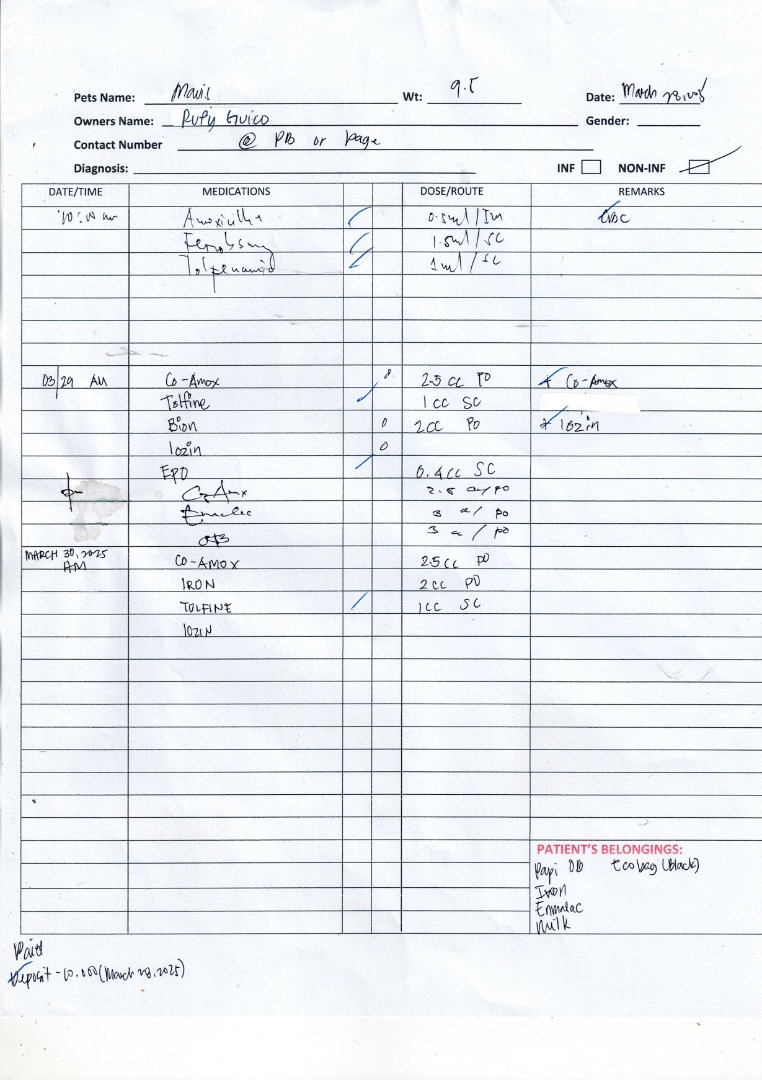 Pets Name: Mavis Wt: 9.5 Date: March 28, 2025
Owners Name: Rufy Guico Gender:
Contact Number @ PB or page
Diagnosis: INF NON-INF
DATE/TIME MEDICATIONS DOSE/ROUTE REMARKS
10:10 am 0.5ml/IM CBC
1.5ml/SC
1ml/SC
03/29 AM Co-Amox 2.5 cc PO Co-Amox
Tolfine 1 cc SC
Bion 2cc PO iozin
iozin
EPO 0.4cc SC
Co-Amx 2.5 cc/po
Emulac 3 cc/po
3 cc/po
MARCH 30, 2025 CO-AMOX 2.5cc PO
AM
IRON 2cc PO
TOLFINE 1cc SC
IOZIN
PATIENT'S BELONGINGS:
Papi OB Eco bag (Black)
Iron
Emmulac
Milk
Paid
Deposit - 10.000 (March 28, 2025)